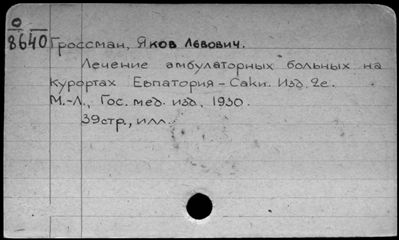 О
8640
Гроссман, Яков Львович.
Лечение амбулаторных больных на
курортах Евпатория - Саки. Изд. 2е.
М.-Л., Гос. мед. изд., 1930.
39 стр., илл.